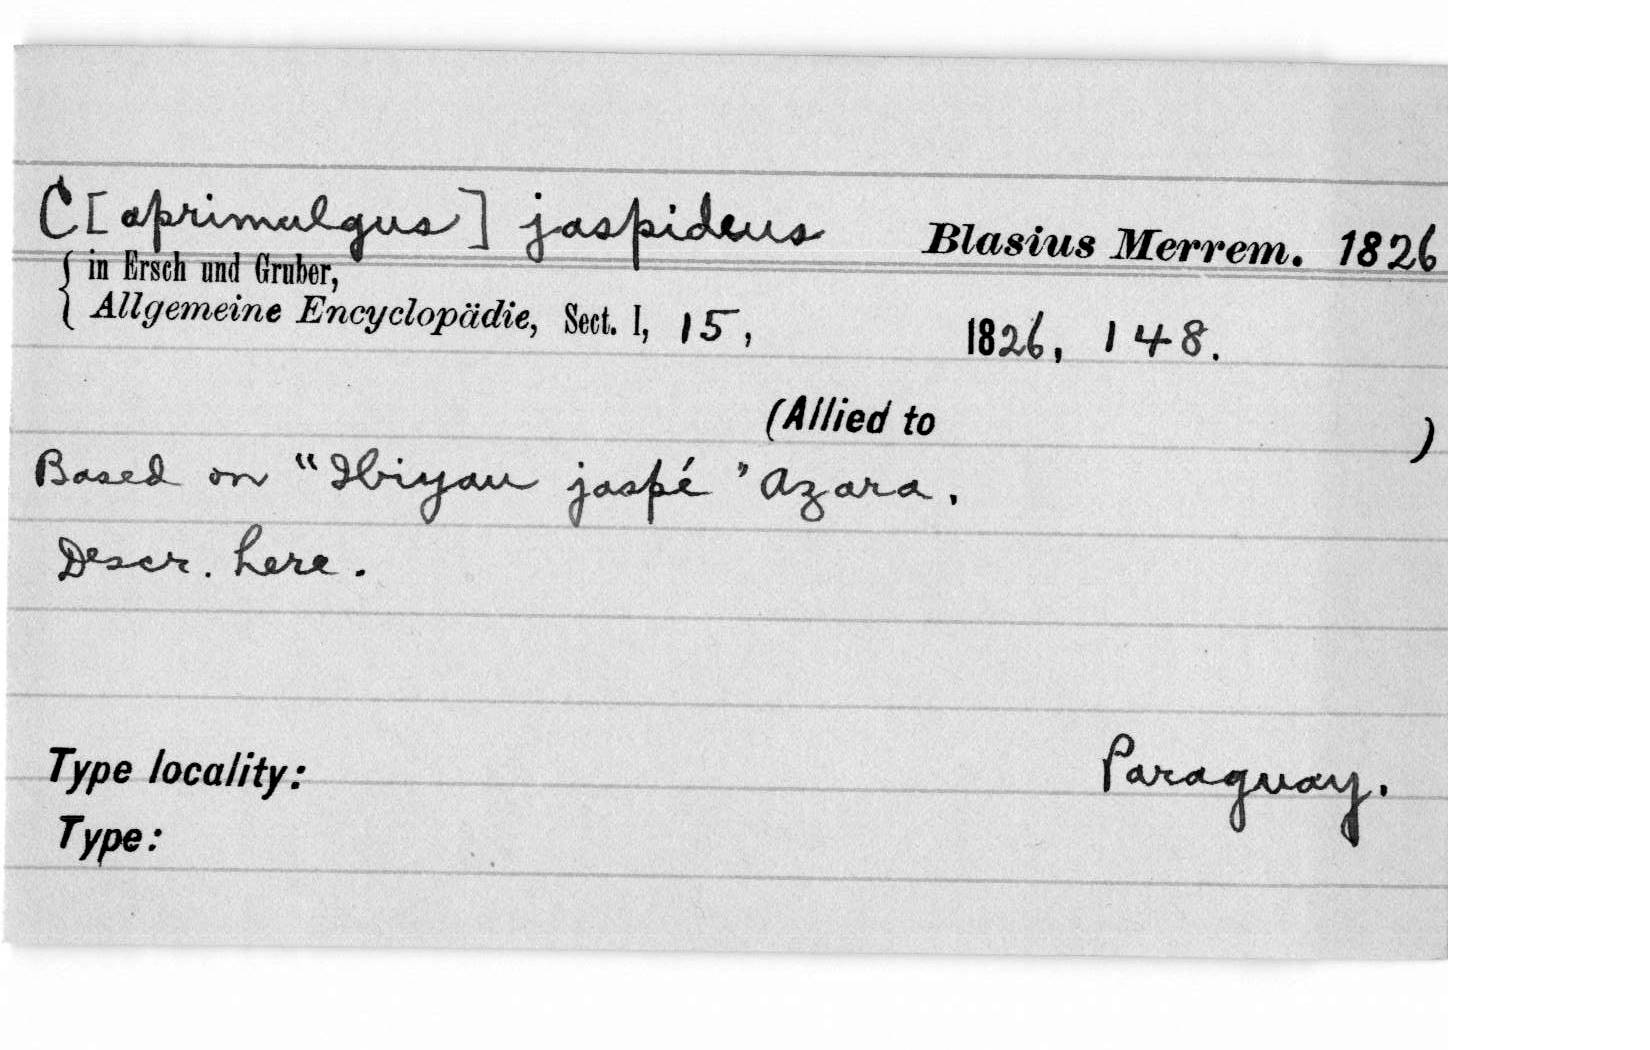 C[aprimulgus] jaspideus Blasius Merrem. 1826
in Ersch und Gruber,
Allgemeine Encyclopädie, Sect. I, 15, 1826, 148.
(Allied to )
Based on "Ibiyau jaspé" Azara.
Descr. here.
Type locality: Paraguay.
Type: